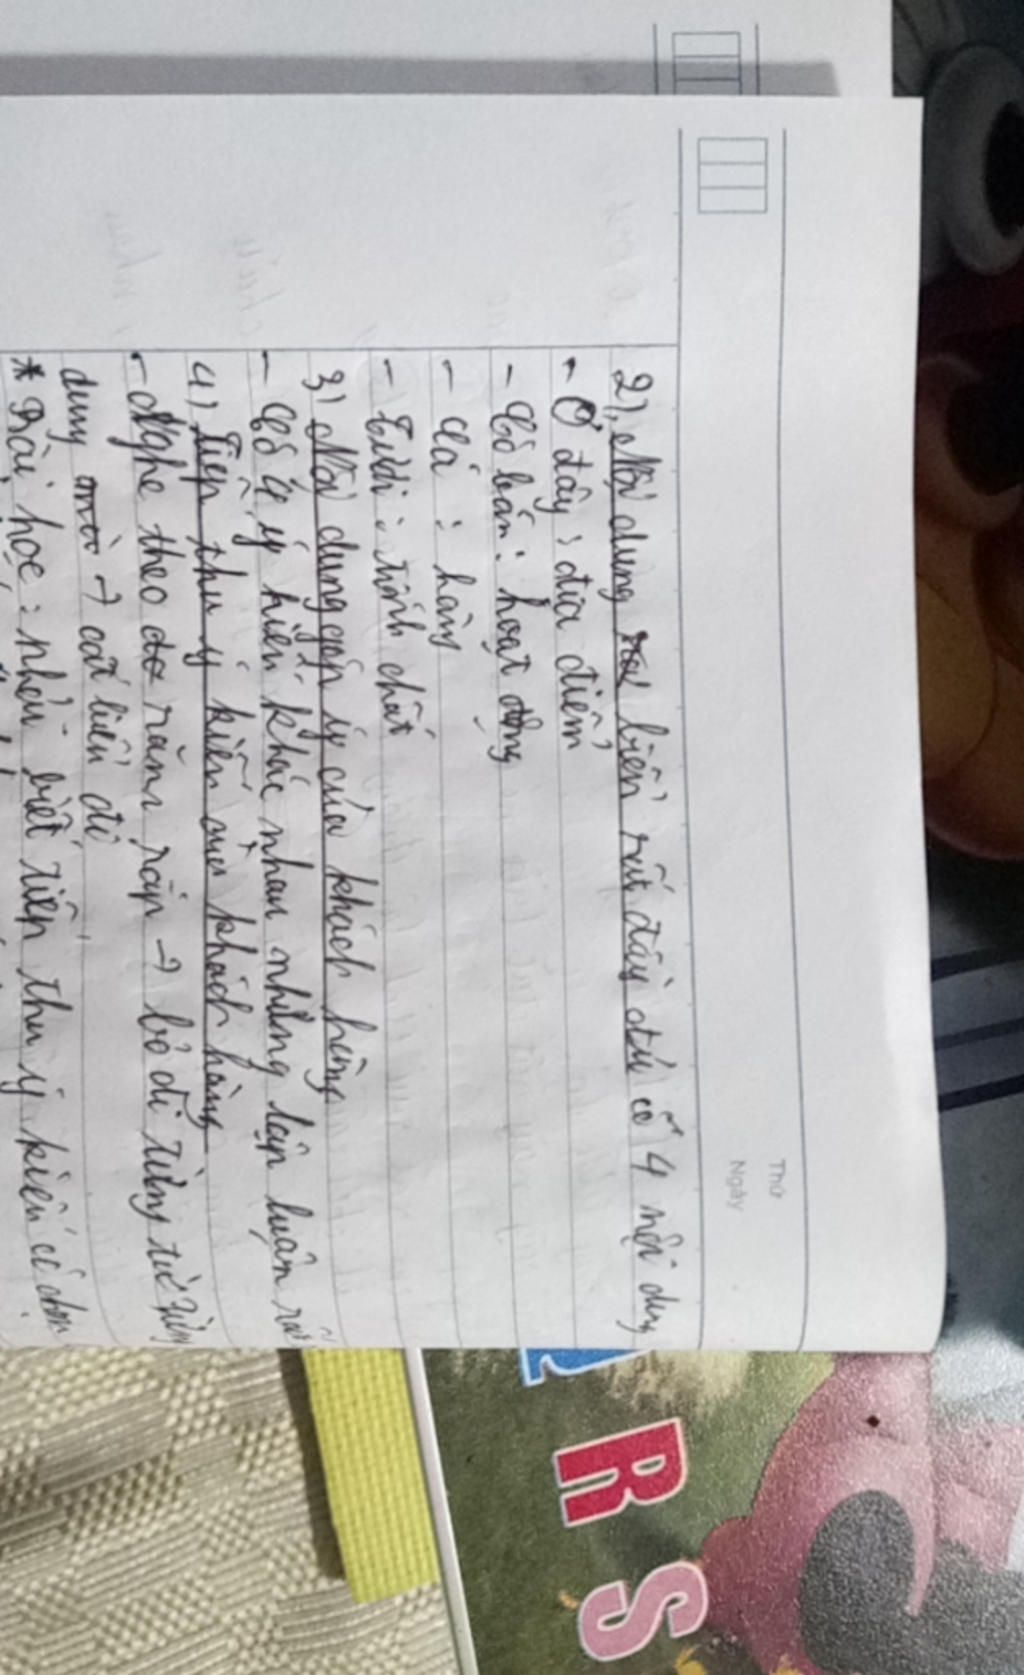 Thứ
Ngày
2), Nội dung biển rất đầy đủ có 4 nội dung
- Ở đây : địa điểm
- Có bán : hoạt động
- Cá : hàng
- Tươi : tính chất
3) Nội dung góp ý của khách hàng
- Có 4 ý kiến khác nhau nhưng lập luận rất
4) Tiếp thu ý kiến của khách hàng
- Nghe theo răm rắp → bỏ đi từng từ từng
dung → cất biển đi
* Bài học : phải biết tiếp thu ý kiến có chọn
R S